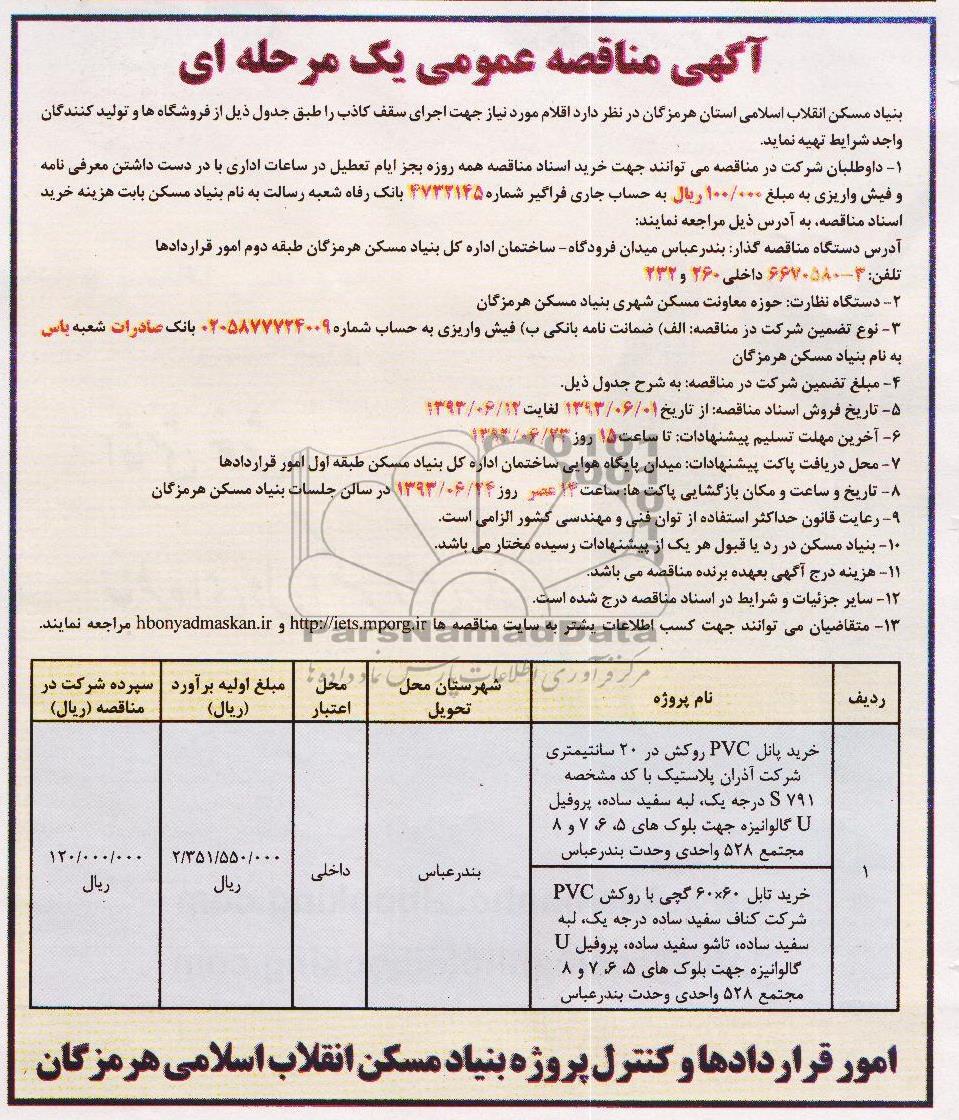 آگهی مناقصه عمومی یک مرحله ای
بنیاد مسکن انقلاب اسلامی استان هرمزگان در نظر دارد اقلام مورد نیاز جهت اجرای سقف کاذب را طبق جدول ذیل از فروشگاه ها و تولید کنندگان
واجد شرایط تهیه نماید.
۱- داوطلبان شرکت در مناقصه می توانند جهت خرید اسناد مناقصه همه روزه بجز ایام تعطیل در ساعات اداری با در دست داشتن معرفی نامه
و فیش واریزی به مبلغ ۱۰۰/۰۰۰ ریال به حساب جاری فراگیر شماره ۴۷۳۲۱۴۵ بانک رفاه شعبه رسالت به نام بنیاد مسکن بابت هزینه خرید
اسناد مناقصه، به آدرس ذیل مراجعه نمایند:
آدرس دستگاه مناقصه گذار: بندرعباس میدان فرودگاه- ساختمان اداره کل بنیاد مسکن هرمزگان طبقه دوم امور قراردادها
تلفن: ۳-۶۶۷۰۵۸۰ داخلی ۲۶۰ و ۲۳۲
۲- دستگاه نظارت: حوزه معاونت مسکن شهری بنیاد مسکن هرمزگان
۳- نوع تضمین شرکت در مناقصه: الف) ضمانت نامه بانکی ب) فیش واریزی به حساب شماره ۰۲۰۵۸۷۷۷۲۴۰۰۹ بانک صادرات شعبه یاس
به نام بنیاد مسکن هرمزگان
۴- مبلغ تضمین شرکت در مناقصه: به شرح جدول ذیل.
۵- تاریخ فروش اسناد مناقصه: از تاریخ ۱۳۹۳/۰۶/۰۱ لغایت ۱۳۹۳/۰۶/۱۲
۶- آخرین مهلت تسلیم پیشنهادات: تا ساعت ۱۵ روز ۱۳۹۳/۰۶/۲۳
۷- محل دریافت پاکت پیشنهادات: میدان پایگاه هوایی ساختمان اداره کل بنیاد مسکن طبقه اول امور قراردادها
۸- تاریخ و ساعت و مکان بازگشایی پاکت ها: ساعت ۱۴ عصر روز ۱۳۹۳/۰۶/۲۴ در سالن جلسات بنیاد مسکن هرمزگان
۹- رعایت قانون حداکثر استفاده از توان فنی و مهندسی کشور الزامی است.
۱۰- بنیاد مسکن در رد یا قبول هر یک از پیشنهادات رسیده مختار می باشد.
۱۱- هزینه درج آگهی بعهده برنده مناقصه می باشد.
۱۲- سایر جزئیات و شرایط در اسناد مناقصه درج شده است.
۱۳- متقاضیان می توانند جهت کسب اطلاعات بیشتر به سایت مناقصه ها http://iets.mporg.ir و hbonyadmaskan.ir مراجعه نمایند.
ParsNamadData
مرکز فرآوری اطلاعات پارس نماد داده ها
ردیف نام پروژه شهرستان محل تحویل محل اعتبار مبلغ اولیه برآورد (ریال) سپرده شرکت در مناقصه (ریال)
۱
خرید پانل PVC روکش در ۲۰ سانتیمتری
شرکت آذران پلاستیک با کد مشخصه
S ۷۹۱ درجه یک، لبه سفید ساده، پروفیل
U گالوانیزه جهت بلوک های ۵، ۶، ۷ و ۸
مجتمع ۵۲۸ واحدی وحدت بندرعباس
خرید تایل ۶۰×۶۰ گچی با روکش PVC
شرکت کناف سفید ساده درجه یک، لبه
سفید ساده، تاشو سفید ساده، پروفیل U
گالوانیزه جهت بلوک های ۵، ۶، ۷ و ۸
مجتمع ۵۲۸ واحدی وحدت بندرعباس
بندرعباس
داخلی
۲/۳۵۱/۵۵۰/۰۰۰
ریال
۱۲۰/۰۰۰/۰۰۰
ریال
امور قراردادها و کنترل پروژه بنیاد مسکن انقلاب اسلامی هرمزگان